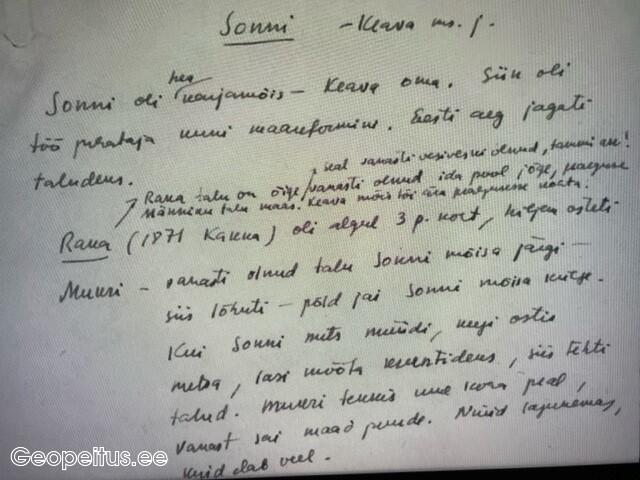 Sonni – Keava ms. j.
hea
Sonni oli karjamõis – Keava oma. Siin oli
töö puhataja kuni maareformini. Eesti aeg jagati
taludeks.
seal vanasti vesiveski olnud, tammi ase!
Rana talu on õige vanasti olnud ida pool jõge, praeguse
Männiku talu maas. Keava mõis tõi ära praegusse kohta.
Rana (1871 Kanna) oli algul 3 p. koht, hiljem osteti
Muuri – vanasti olnud talu Sonni mõisa järgi –
siis lõhuti – põld jäi Sonni mõisa külge.
Kui Sonni mets müüdi, keegi ostis
metsa, lasi mõõta krundideks, siis tehti
talud. Muuri tekkis uue koha peal,
vanast sai maad juurde. Nüüd lagunemas,
kuid elab veel.
Geopeitus.ee